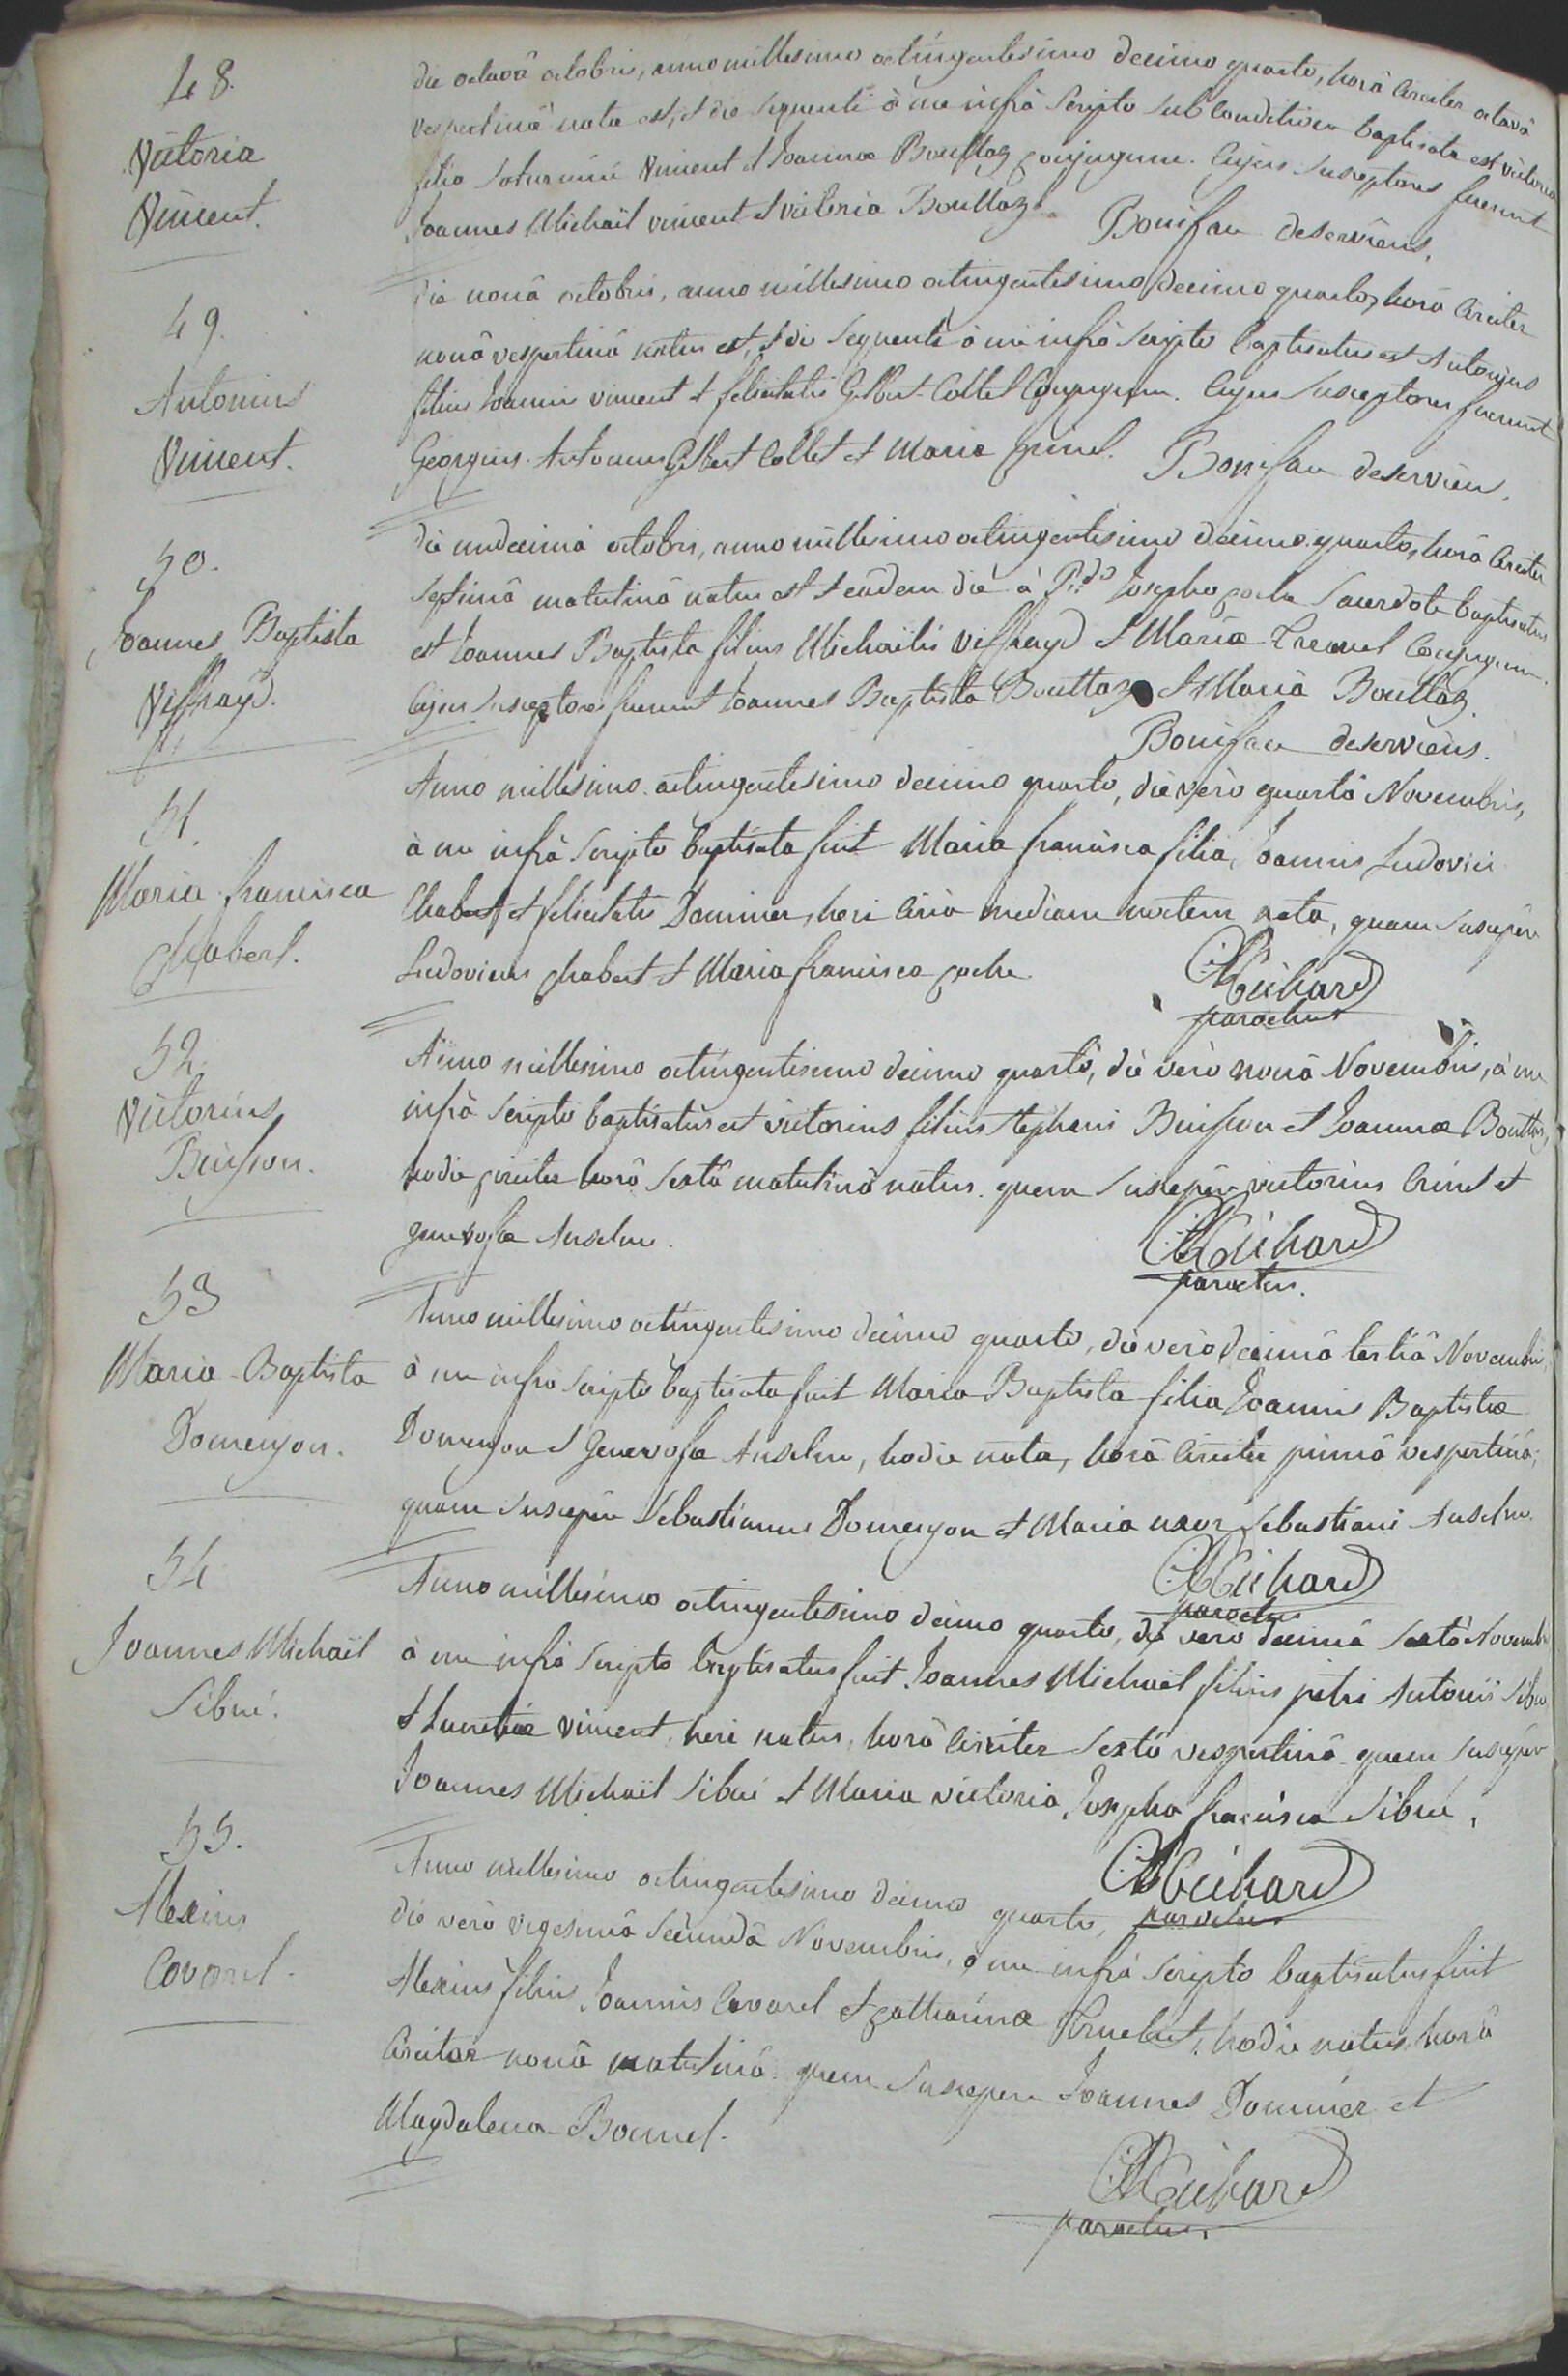 48.
Victoria
Vincent.
die octavâ octobris, anno millesimo octingentesimo decimo quarto, horâ circiter octavâ
vespertinâ nata est, et die sequenti à me infrà scripto sub conditione baptisata est victoria
filia Saturnini Vincent et Joannæ Bouttaz conjugum. Cujus susceptores fuerunt
Joannes Michaël vincent et victoria Bouttaz.
Boniface deserviens.
49.
Antonius
Vincent.
die nonâ octobris, anno millesimo octingentesimo decimo quarto, horâ circiter
nonâ vespertinâ natus est, et die sequenti à me infrà scripto baptisatus est Antonius
filius Joannis vincent et felicitatis Gilbert-Collet Conjugum. Cujus susceptores fuerunt
Georgius-Antonius Gilbert Collet et Maria
Boniface deserviens.
50.
Joannes Baptista
Viffrayd.
die undecimâ octobris, anno millesimo octingentesimo decimo quarto, horâ circiter
septimâ matutinâ natus est et eâdem die à R.do Josepho Sacerdote baptisatus
est Joannes Baptista filius Michaëlis Viffrayd et Mariæ Conjugum.
Cujus susceptores fuerunt Joannes Baptista Bouttaz et Maria Bouttaz.
Boniface deserviens.
51.
Maria-francisca
Chabert.
Anno millesimo octingentesimo decimo quarto, die verò quartâ Novembris,
à me infrà scripto baptisata fuit Maria francisca filia, Joannis Ludovici
Chabert et felicitatis Dominer, heri circà mediam noctem nata, quam suscepere
Ludovicus Chabert et Maria francisca
Richard
parochus
52.
Victorius
Buisson.
Anno millesimo octingentesimo decimo quarto, die verò nonâ Novembris, à me
infrà scripto baptisatus est victorius filius stephani Buisson et Joannæ Bouttaz,
hodie circiter horâ sextâ matutinâ natus. quem suscepere victorius et
genevofa Anselme.
Richard
parochus.
53
Maria-Baptista
Domenjon.
Anno millesimo octingentesimo decimo quarto, die verò decimâ tertiâ Novembris,
à me infrà scripto baptisata fuit Maria Baptista filia Joannis Baptistæ
Domenjon et Genevofæ Anselme, hodie nata, horâ circiter primâ vespertinâ;
quam suscepere Sebastianus Domenjon et Maria uxor Sebastiani Anselme.
Richard
parochus
54
Joannes Michaël
Sibué.
Anno millesimo octingentesimo decimo quarto, die verò decimâ sextâ Novembris
à me infrà scripto baptisatus fuit Joannes Michaël filius petri Antonii Sibué
et Lucretiæ vincent, heri natus, horâ circiter sextâ vespertinâ. quem suscepere
Joannes Michaël Sibué et Maria victoria Josepha francisca Sibué.
Richard
parochus
55.
Alexius
Covarel.
Anno millesimo octingentesimo decimo quarto,
die verò vigesimâ secundâ Novembris, à me infrà scripto baptisatus fuit
Alexius filius Joannis Covarel et Catharinæ Truchet, hodie natus, horâ
circiter nonâ matutinâ. quem suscepere Joannes Dominer et
Magdalena Bonnel.
Richard
parochus.